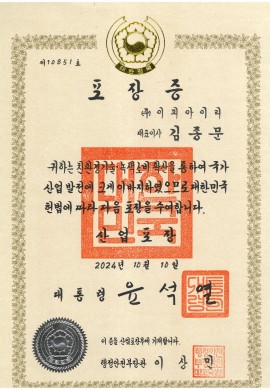 대한민국
제10851호
포장증
(주)이피아이티
대표이사 김종문
귀하는 친환경기술 녹색소비 확산을 통하여 국가
산업발전에 크게 이바지하였으므로 대한민국
헌법에 따라 다음 포장을 수여합니다.
산업포장
2024년 10월 10일
대통령 윤석열
이 증을 산업포장부에 기재합니다.
행정안전부장관 이상민